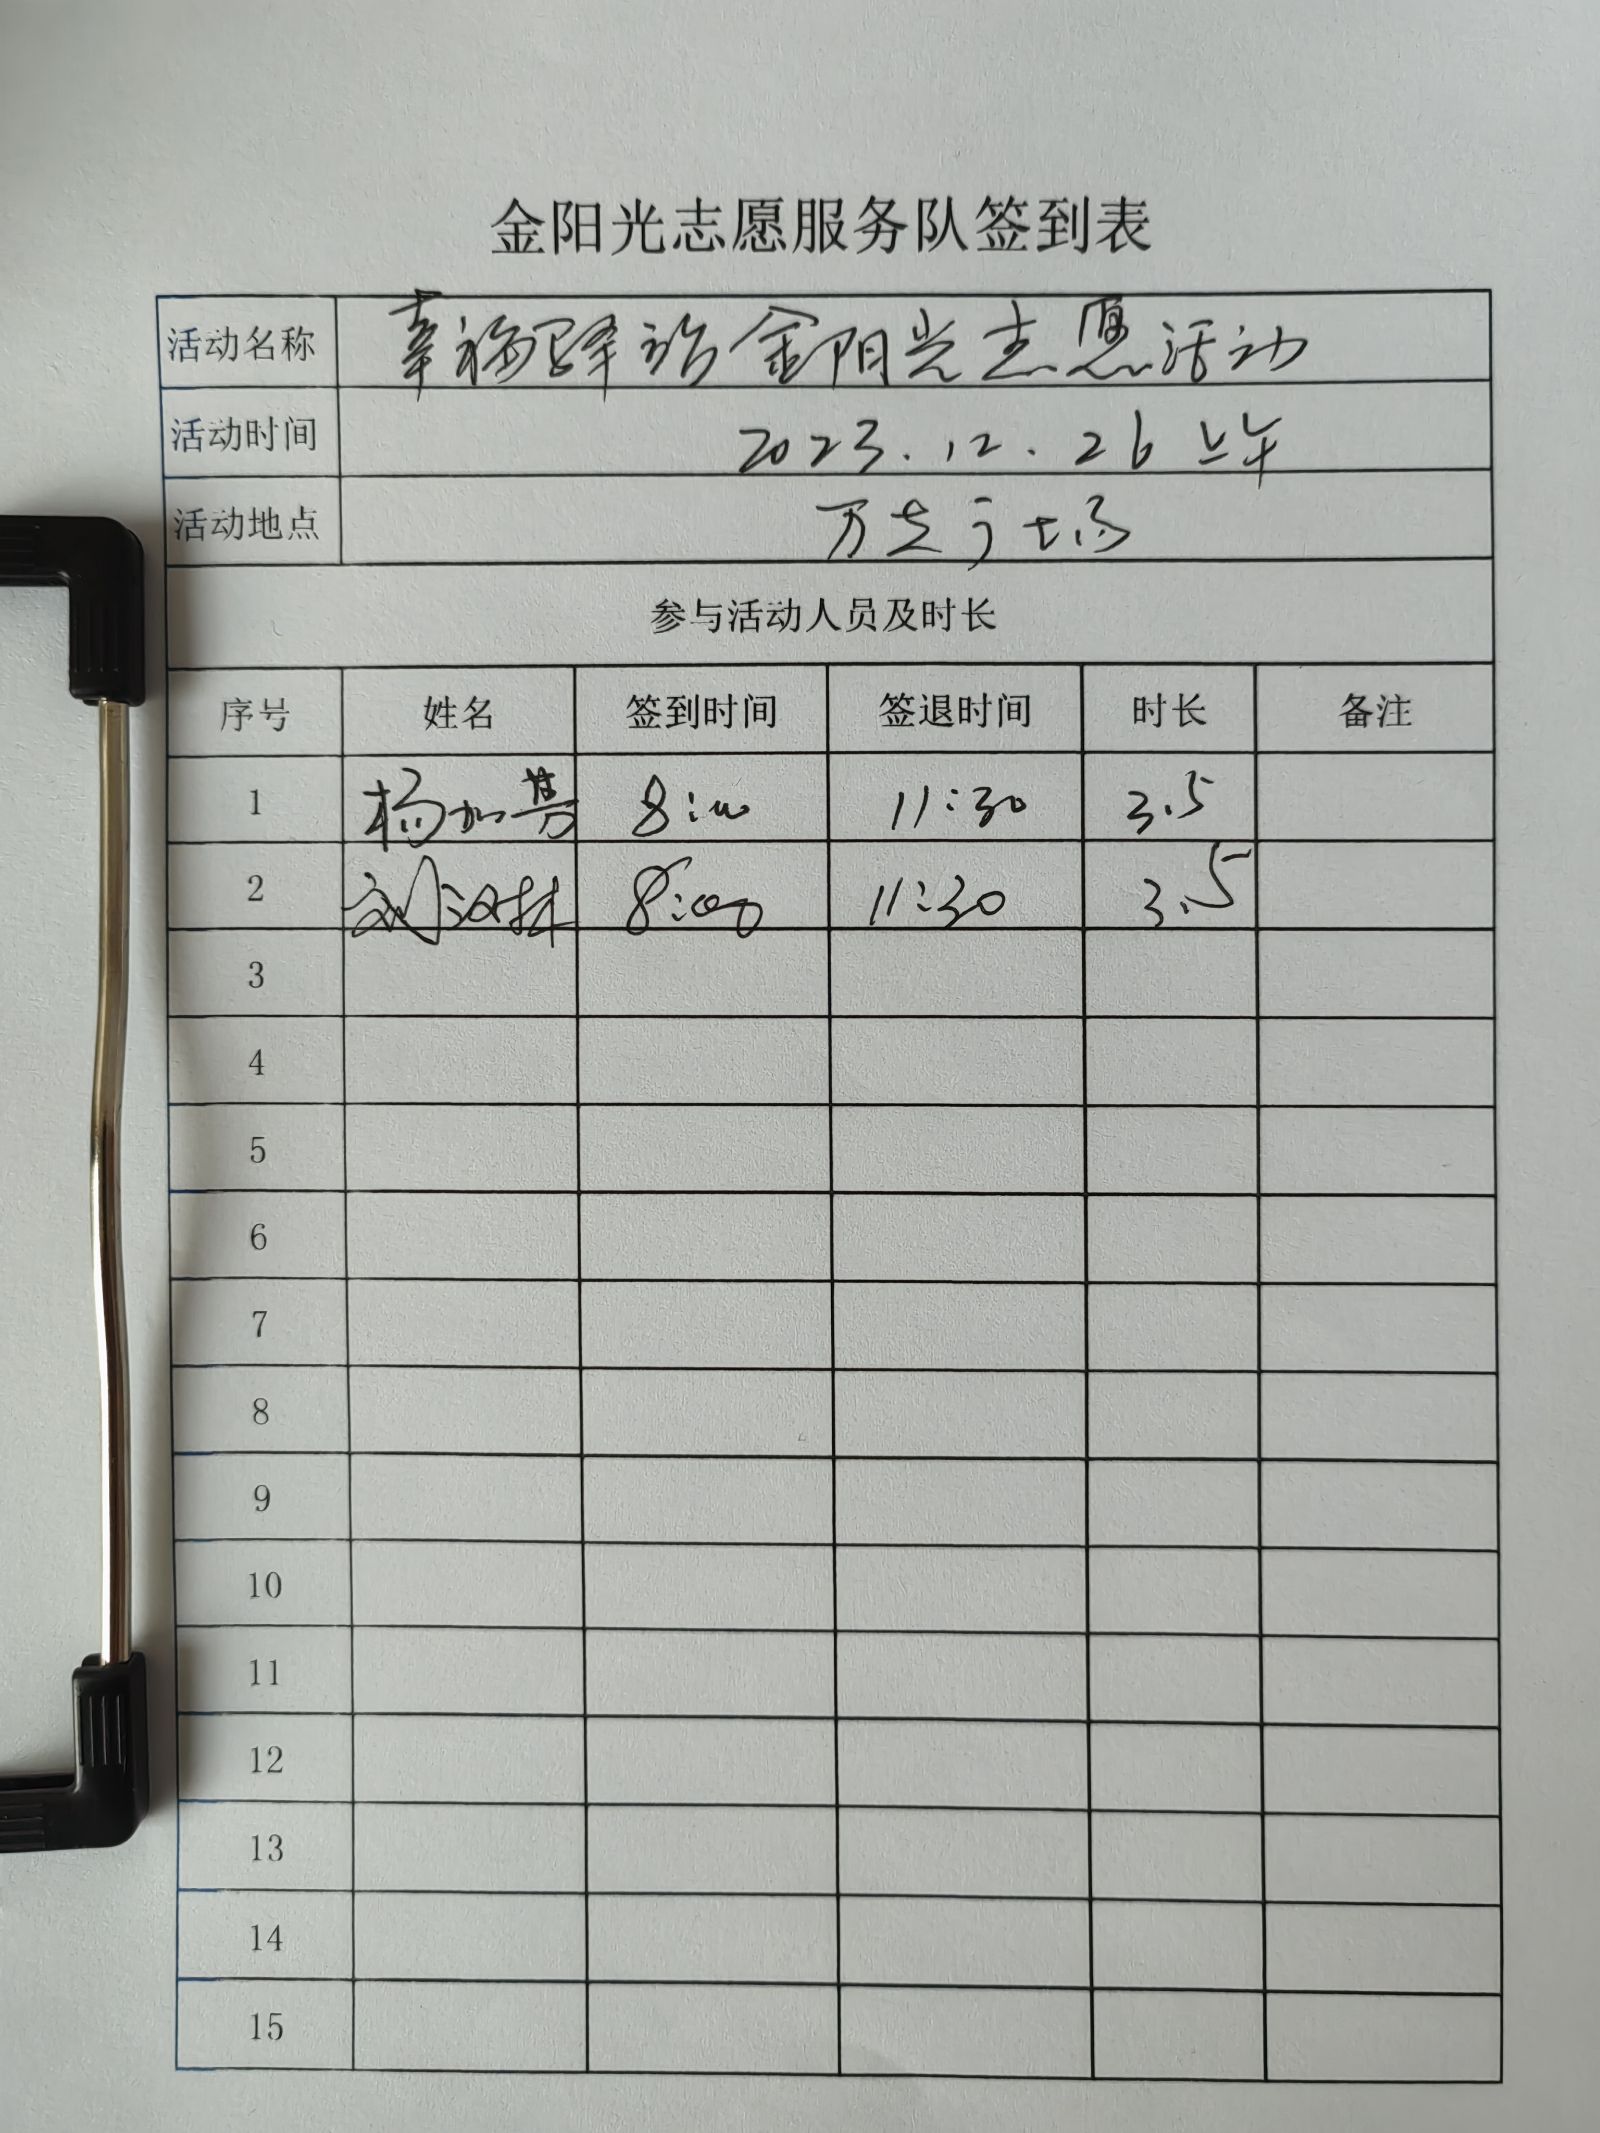 金阳光志愿服务队签到表
活动名称 幸福驿站金阳光志愿活动
活动时间 2023.12.26 上午
活动地点 万达广场
参与活动人员及时长
序号 姓名 签到时间 签退时间 时长 备注
1 杨加 8:00 11:30 3.5
2 刘汉林 8:00 11:30 3.5
3
4
5
6
7
8
9
10
11
12
13
14
15